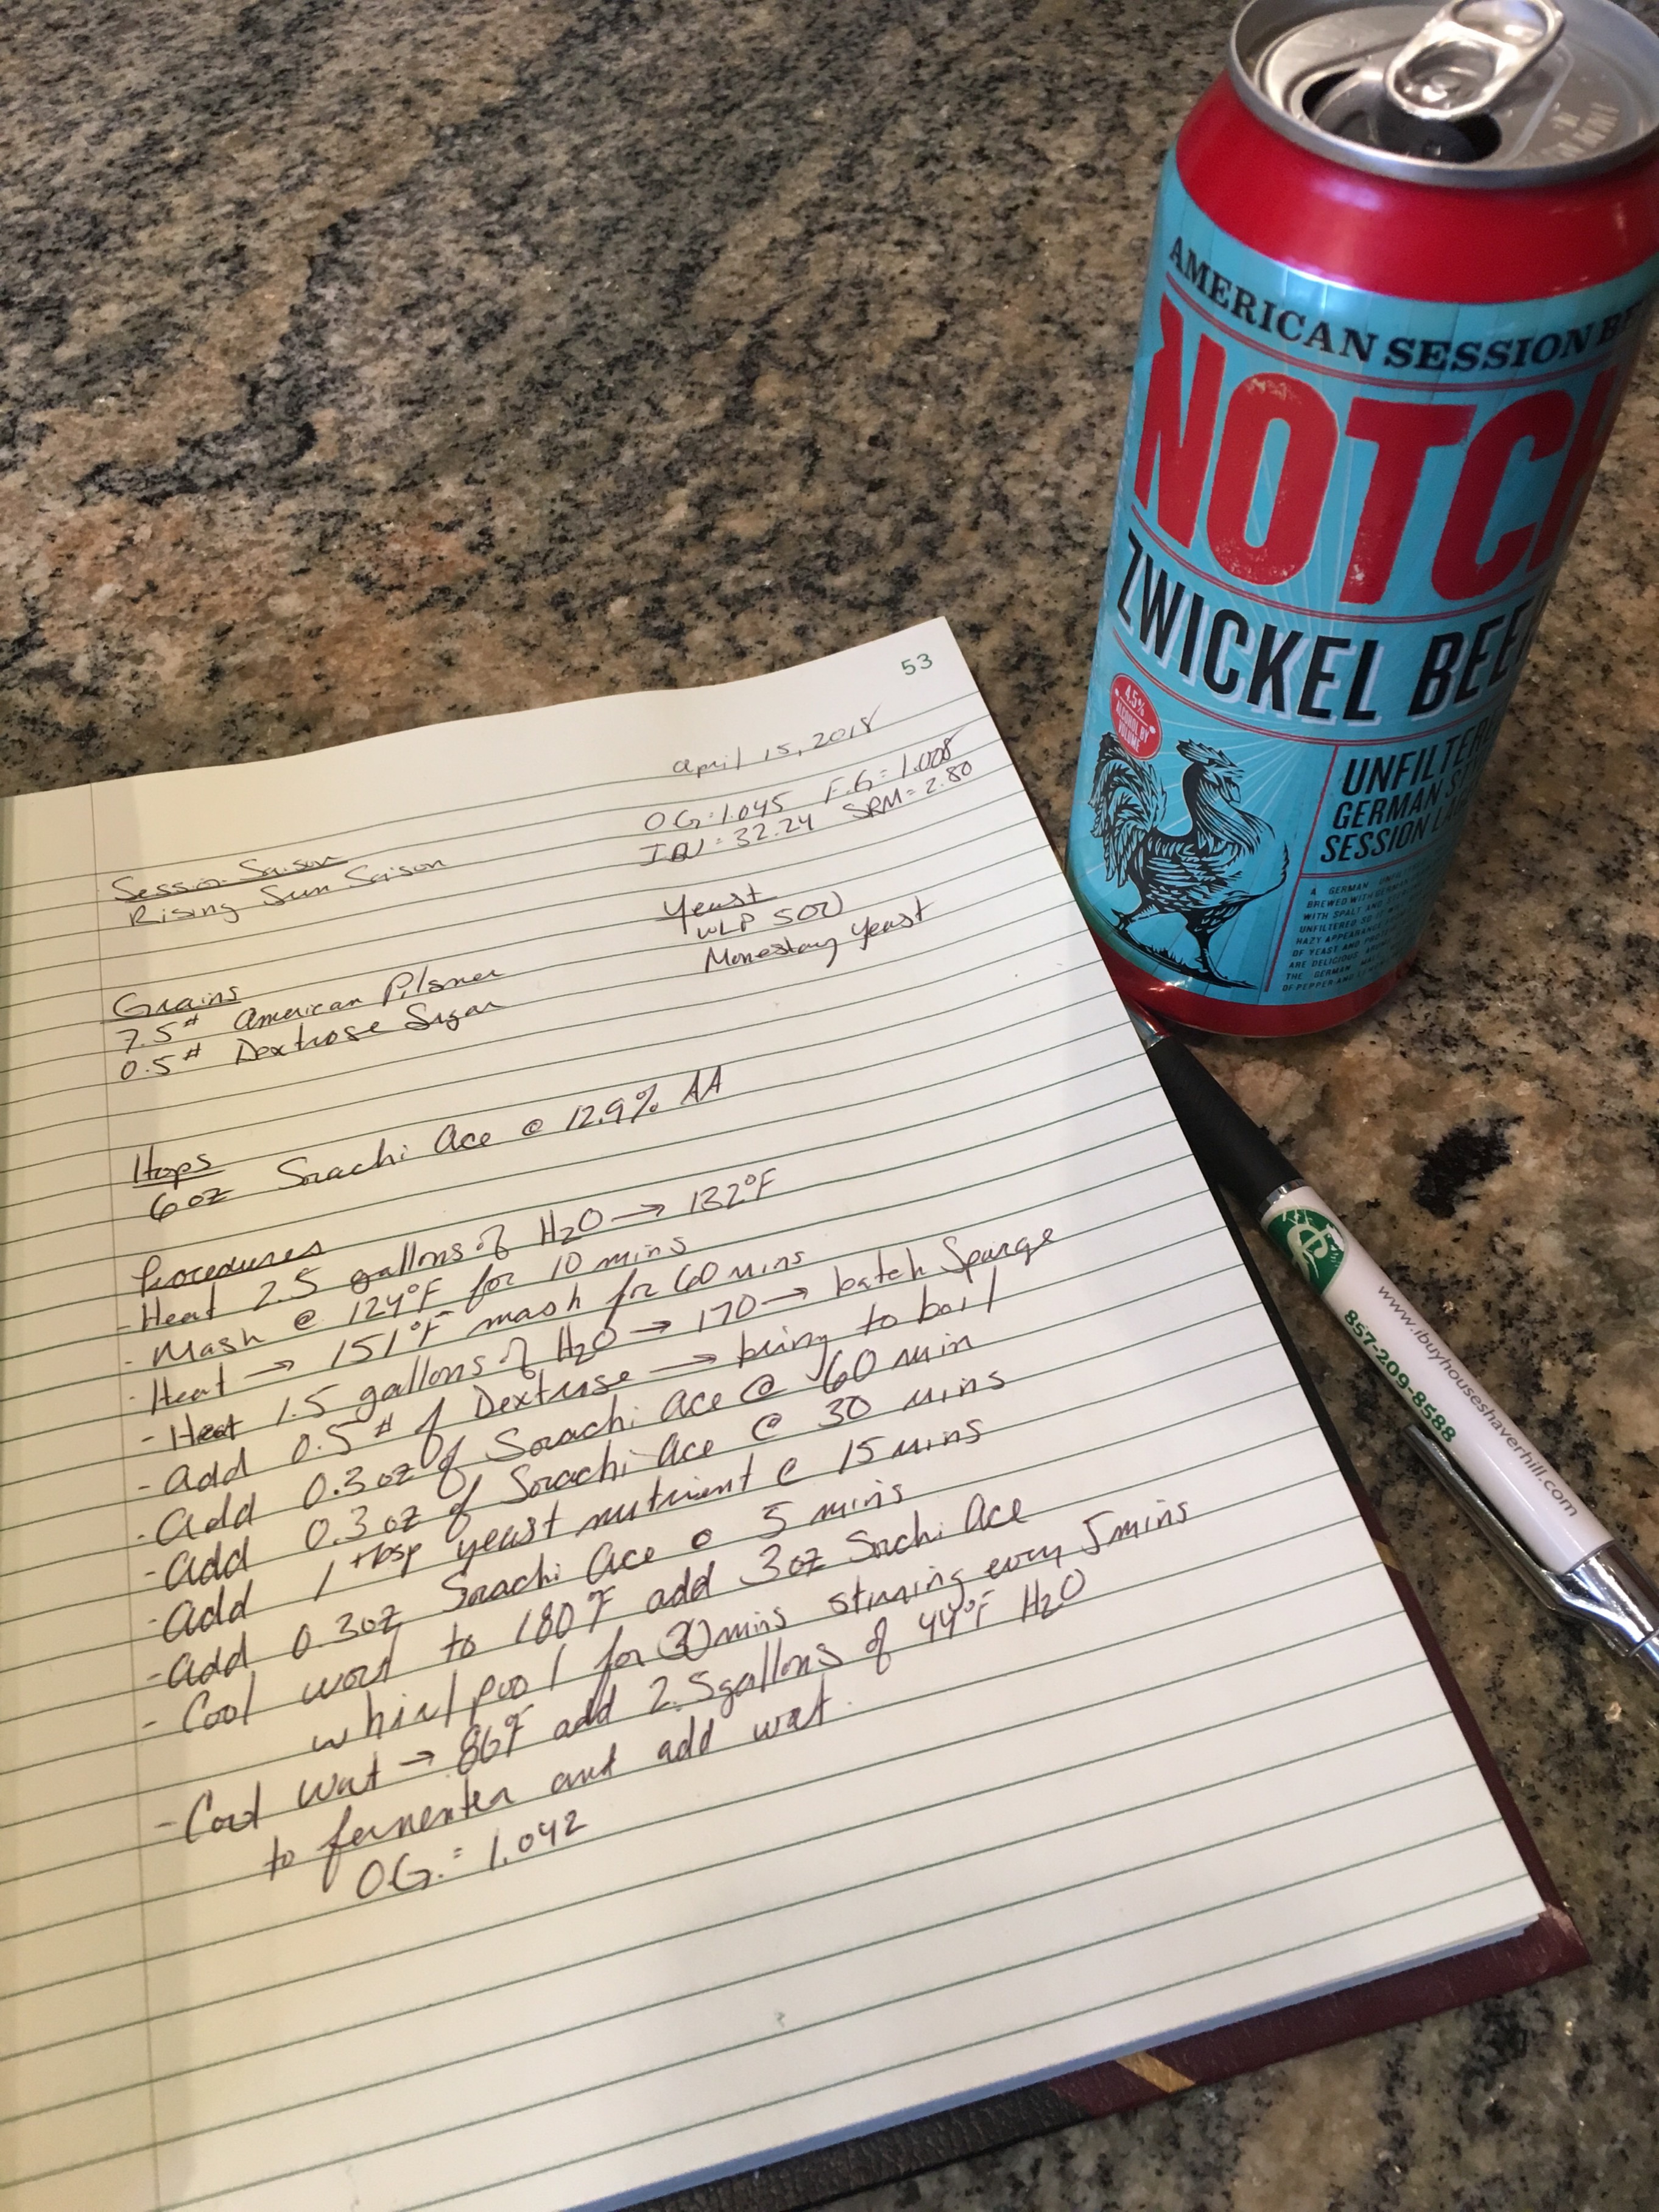 AMERICAN SESSION BE
NOTCH
ZWICKEL BEE
4.5%
ALCOHOL BY
VOLUME
UNFILTER
GERMAN ST
SESSION LA
A GERMAN
BREWED WITH GERMAN
WITH SPALT AND
UNFILTERED SO
HAZY APPEARANCE
OF YEAST AND
ARE DELICIOUS.
THE GERMAN
OF PEPPER AND
53
April 15, 2018
OG=1.045 F.G=1.008
IBU=32.24 SRM=2.80
Session Saison
Rising Sun Saison
Yeast
WLP 500
Monestary Yeast
Grains
7.5# American Pilsner
0.5# Dextrose Sugar
Hops
6oz Sorachi Ace @ 12.9% AA
Procedures
- Heat 2.5 gallons of H2O → 132°F
- Mash @ 124°F for 10 mins
- Heat → 151°F mash for 60 mins
- Heat 1.5 gallons of H2O → 170 → batch Sparge
- Add 0.5# of Dextrose → bring to boil
- Add 0.3oz of Sorachi Ace @ 60 min
- Add 0.3oz of Sorachi Ace @ 30 mins
- Add 1 tbsp yeast nutrient @ 15 mins
- Add 0.3oz Sorachi Ace @ 5 mins
- Cool wort to 180°F add 3oz Srachi Ace
whirlpool for 30 mins stirring every 5 mins
- Cool wort → 86°F add 2.5 gallons of 44°F H2O
to fermenter and add wort.
OG.= 1.042
www.ibuyhouseshaverhill.com
857-209-8588